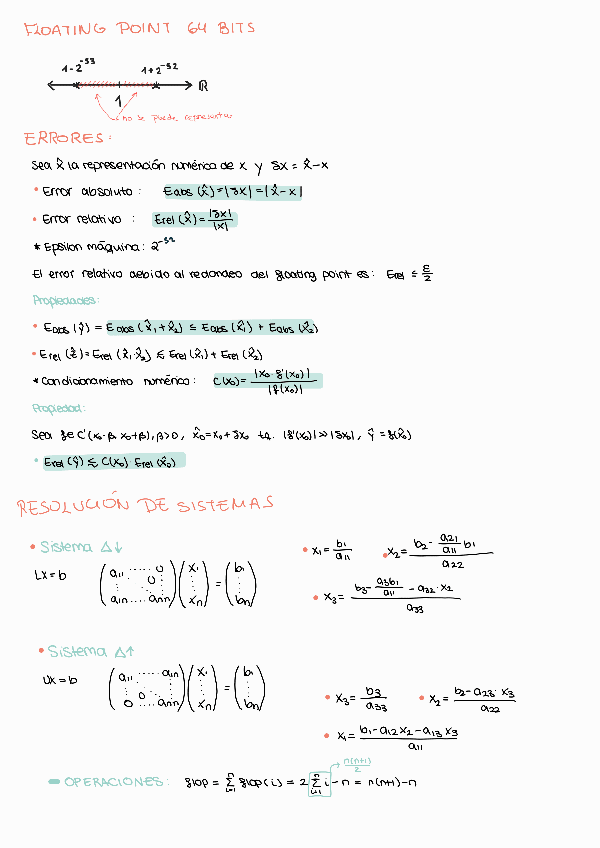 FLOATING POINT 64 BITS
1-2^-53 1+2^-52
ℝ
1
no se puede representar
ERRORES:
Sea x̂ la representación numérica de x y δx = x̂-x
• Error absoluto: Eabs (x̂) = |δx| = |x̂-x|
• Error relativo: Erel (x̂) = |δx| / |x|
* Epsilon máquina: 2^-52
El error relativo debido al redondeo del floating point es: Erel ≤ ε/2
Propiedades:
• Eabs (ŷ) = Eabs (x̂₁+x̂₂) ≤ Eabs (x̂₁) + Eabs (x̂₂)
• Erel (ẑ) = Erel (x̂₁·x̂₂) ≲ Erel (x̂₁) + Erel (x̂₂)
* Condicionamiento numérico: C(x₀) = |x₀·f'(x₀)| / |f(x₀)|
Propiedad:
Sea f∈C'(x₀-β, x₀+β), β>0, x̂₀=x₀+δx₀ tq. |f'(x₀)| >> |δx₀|, ŷ = f(x̂₀)
• Erel (ŷ) ≲ C(x₀) Erel (x̂₀)
RESOLUCIÓN DE SISTEMAS
• Sistema Δ↓
Lx = b (a₁₁ ..... 0 0 a₁n ... ann) (x₁ xn) = (b₁ bn)
• x₁ = b₁ / a₁₁ • x₂ = (b₂ - a₂₁/a₁₁ b₁) / a₂₂
• x₃ = (b₃ - a₃b₁/a₁₁ - a₃₂·x₂) / a₃₃
• Sistema Δ↑
Ux = b (a₁₁ ..... a₁n 0 0 ... ann) (x₁ xn) = (b₁ bn)
• x₃ = b₃ / a₃₃ • x₂ = (b₂-a₂₃·x₃) / a₂₂
• x₁ = (b₁-a₁₂x₂-a₁₃x₃) / a₁₁
n(n+1)/2
OPERACIONES: flop = Σ_{i=1}^{n} flop(i) = 2 Σ_{i=1}^{n} i - n = n(n+1)-n